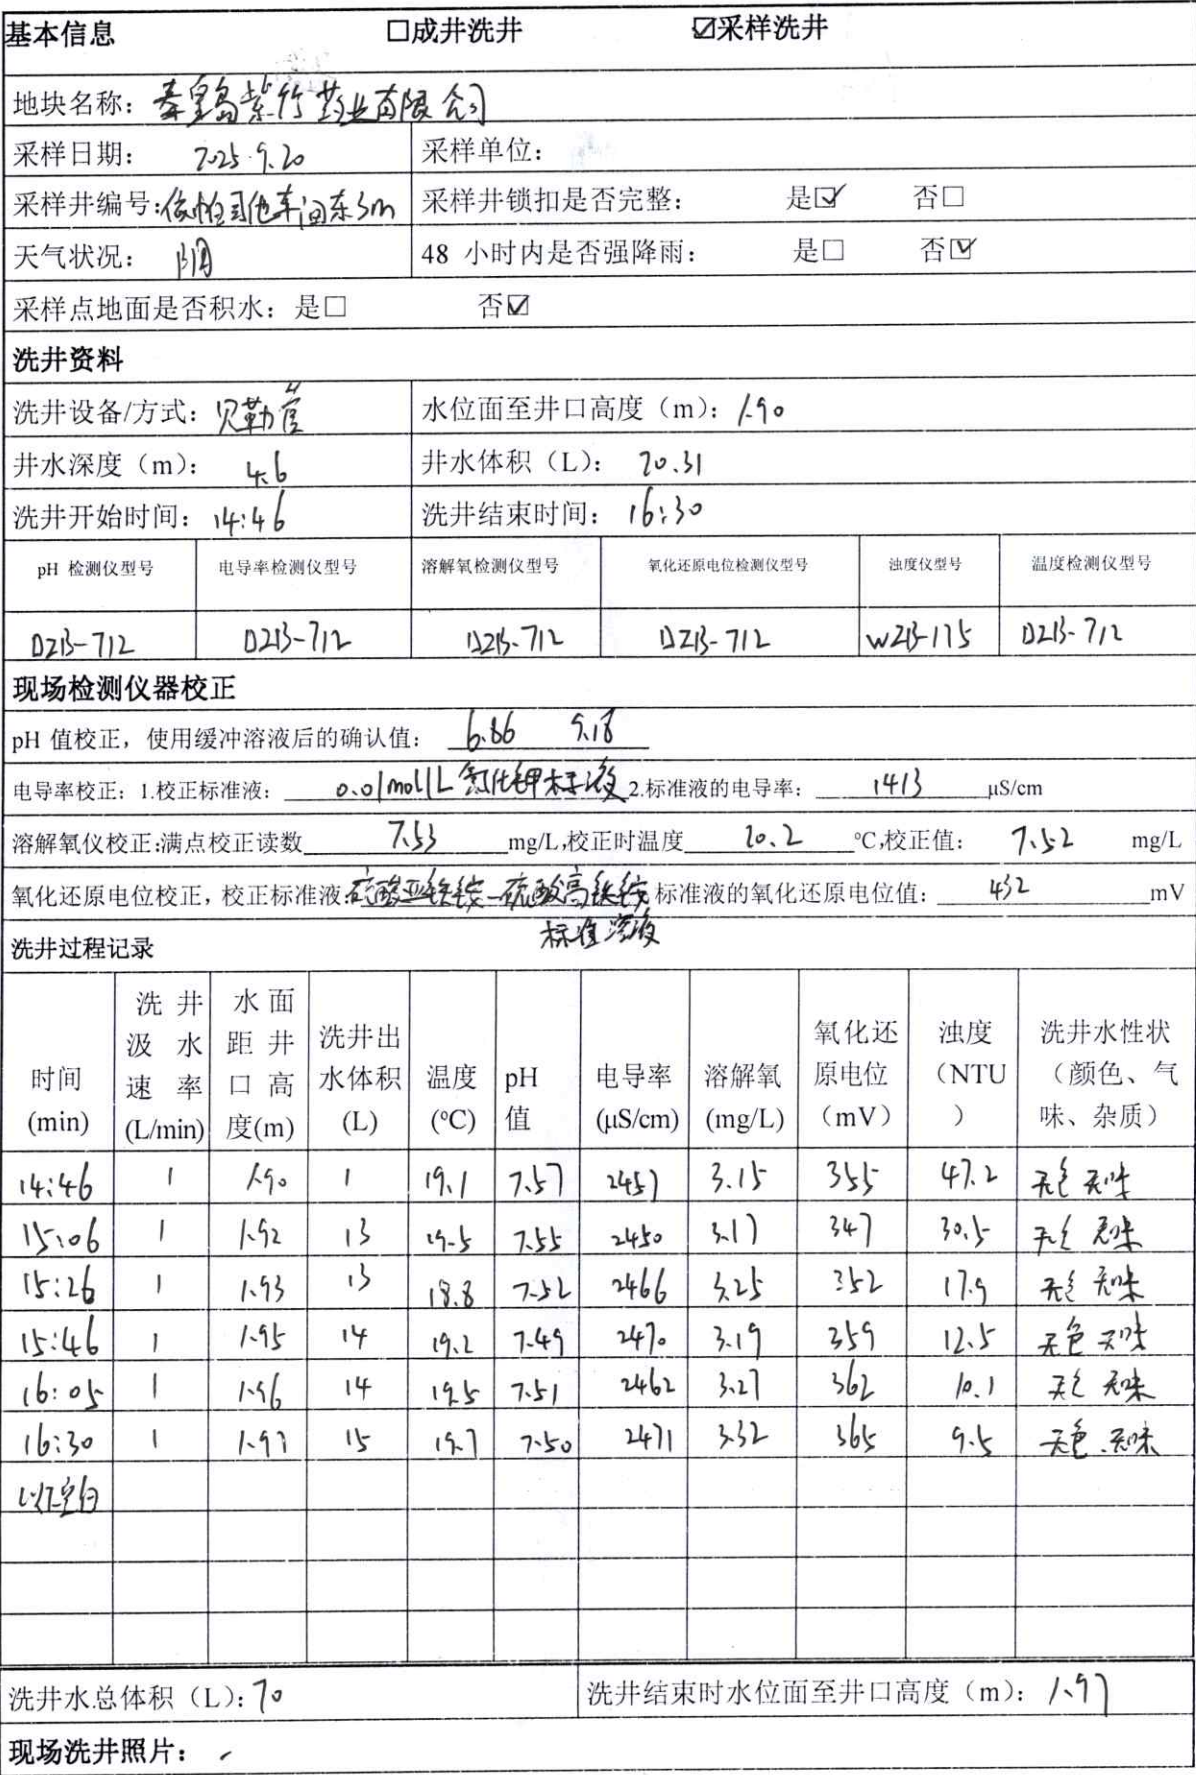 基本信息 □成井洗井 ☑采样洗井
地块名称：秦皇岛紫竹药业有限公司
采样日期： 2025.9.20 采样单位：
采样井编号：依帕司他车间东3m 采样井锁扣是否完整： 是☑ 否□
天气状况： 阴 48 小时内是否强降雨： 是□ 否☑
采样点地面是否积水：是□ 否☑
洗井资料
洗井设备/方式：贝勒管 水位面至井口高度（m）：1.90
井水深度（m）： 4.6 井水体积（L）： 20.31
洗井开始时间：14:46 洗井结束时间：16:30
pH 检测仪型号 电导率检测仪型号 溶解氧检测仪型号 氧化还原电位检测仪型号 浊度仪型号 温度检测仪型号
DZB-712 DZB-712 DZB-712 DZB-712 WZB-175 DZB-712
现场检测仪器校正
pH 值校正，使用缓冲溶液后的确认值： 6.86 9.18
电导率校正：1.校正标准液： 0.01mol/L氯化钾标液 2.标准液的电导率： 1413 μS/cm
溶解氧仪校正:满点校正读数 7.53 mg/L,校正时温度 20.2 °C,校正值： 7.52 mg/L
氧化还原电位校正，校正标准液:硫酸亚铁铵-硫酸高铁铵标准液的氧化还原电位值： 432 mV
标准溶液
洗井过程记录
时间(min) 洗井汲水速率(L/min) 水面距井口高度(m) 洗井出水体积(L) 温度(°C) pH值 电导率(μS/cm) 溶解氧(mg/L) 氧化还原电位（mV） 浊度（NTU） 洗井水性状（颜色、气味、杂质）
14:46 1 1.90 1 19.1 7.57 2457 3.15 355 47.2 无色 无味
15:06 1 1.92 13 19.5 7.55 2450 3.17 347 30.5 无色 无味
15:26 1 1.93 13 18.8 7.52 2466 3.25 352 17.9 无色 无味
15:46 1 1.95 14 19.2 7.49 2470 3.19 359 12.5 无色 无味
16:05 1 1.96 14 19.5 7.51 2462 3.27 362 10.1 无色 无味
16:30 1 1.97 15 19.7 7.50 2471 3.32 365 9.5 无色.无味
以下空白
洗井水总体积（L）：70 洗井结束时水位面至井口高度（m）：1.97
现场洗井照片：